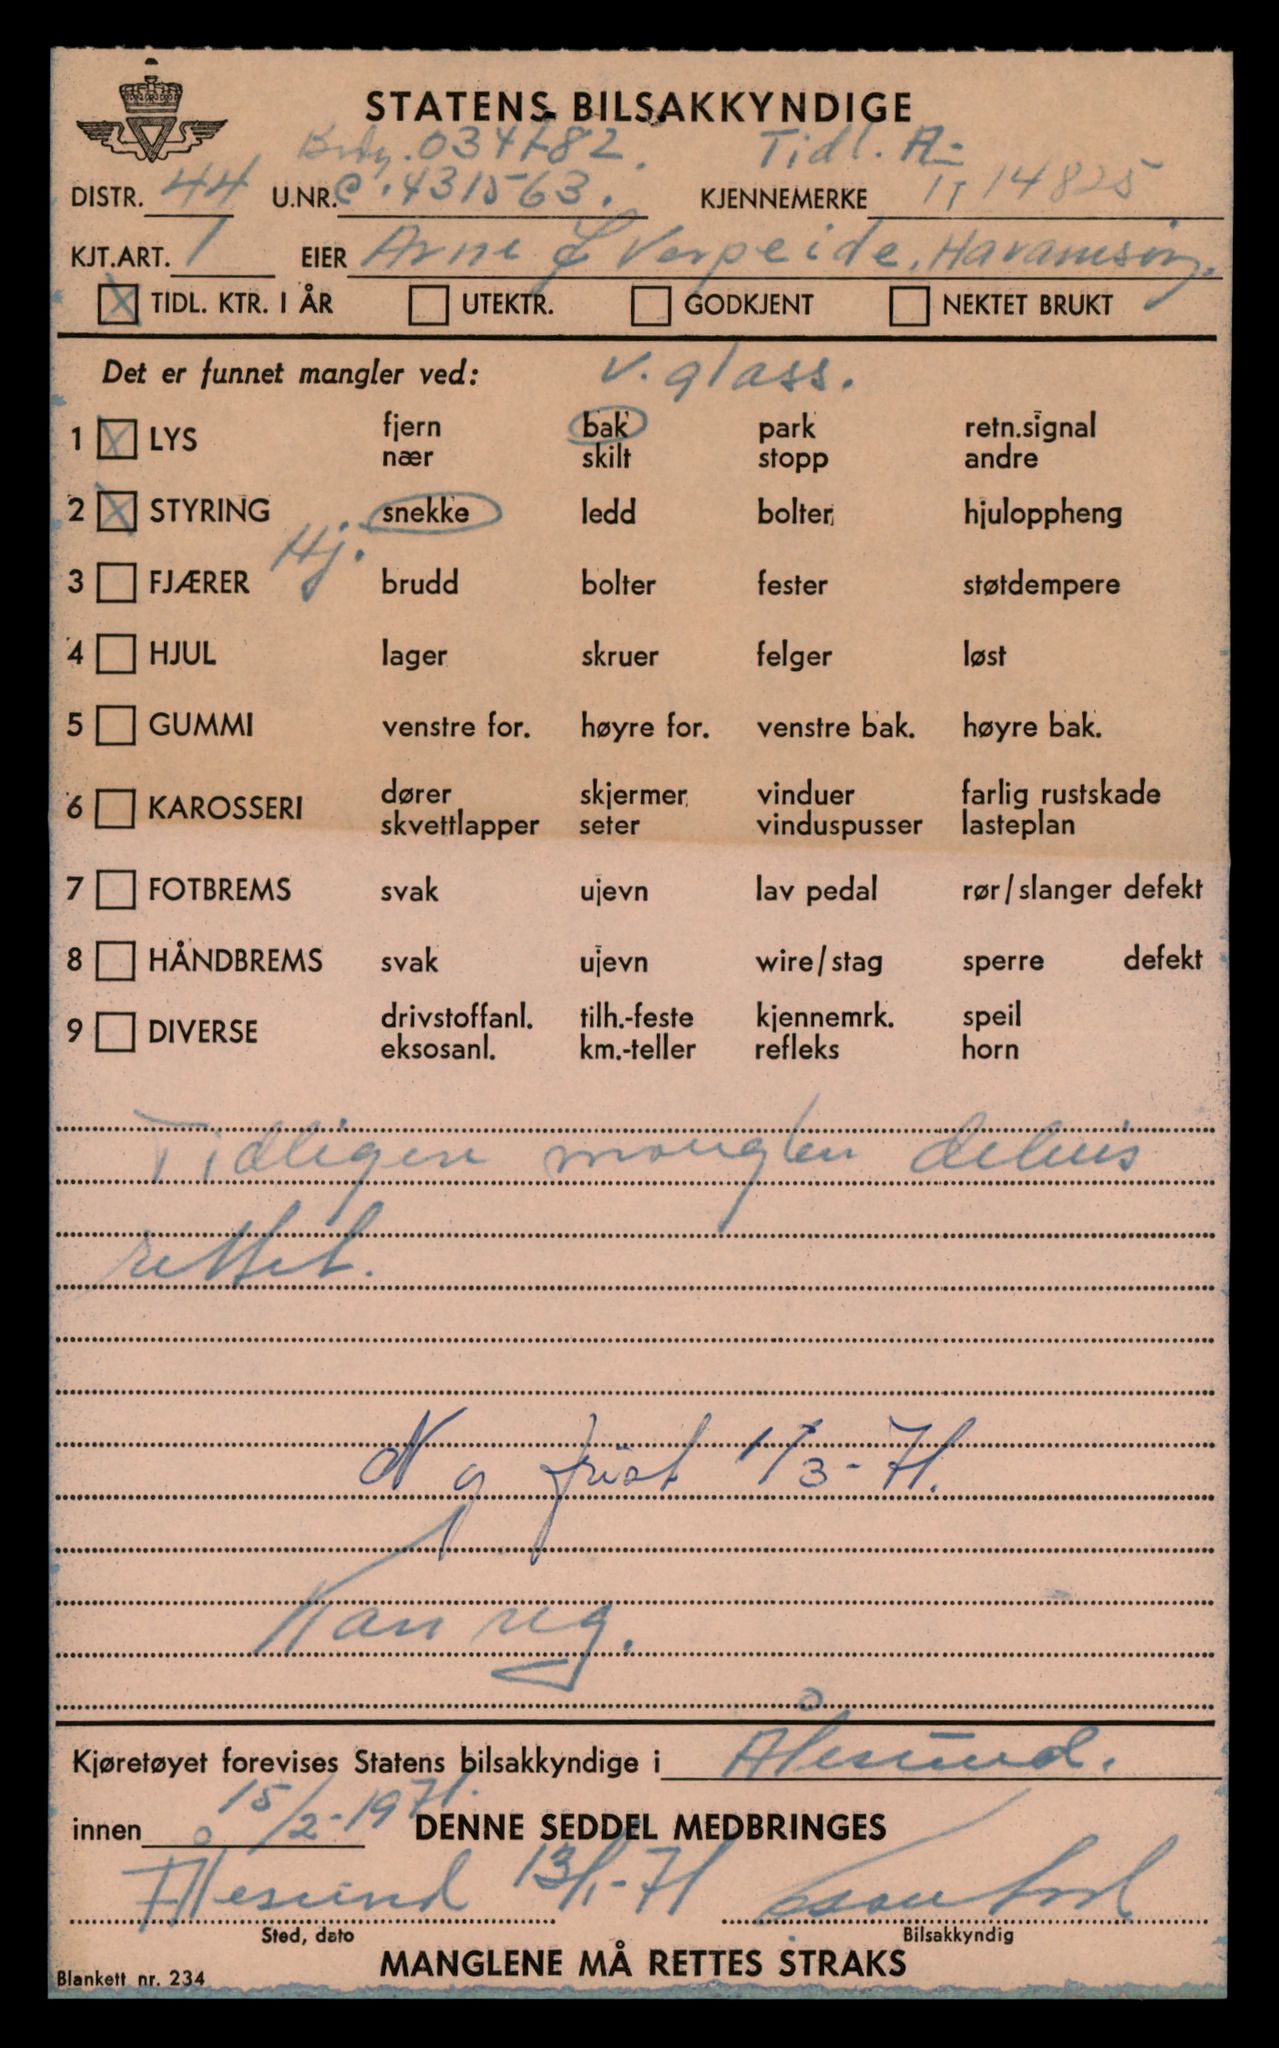 STATENS BILSAKKYNDIGE
Tidl. A-
DISTR. 44 U.NR. C.431563. KJENNEMERKE 14825
KJT.ART. 1 EIER Arne
☒ TIDL. KTR. I ÅR ☐ UTEKTR. ☐ GODKJENT ☐ NEKTET BRUKT
Det er funnet mangler ved: v.glass.
1 ☒ LYS fjern bak park retn.signal
nær skilt stopp andre
2 ☒ STYRING snekke ledd bolter hjuloppheng
Hj.
3 ☐ FJÆRER brudd bolter fester støtdempere
4 ☐ HJUL lager skruer felger løst
5 ☐ GUMMI venstre for. høyre for. venstre bak. høyre bak.
6 ☐ KAROSSERI dører skjermer vinduer farlig rustskade
skvettlapper seter vinduspusser lasteplan
7 ☐ FOTBREMS svak ujevn lav pedal rør/slanger defekt
8 ☐ HÅNDBREMS svak ujevn wire/stag sperre defekt
9 ☐ DIVERSE drivstoffanl. tilh.-feste kjennemrk. speil
eksosanl. km.-teller refleks horn
Tidligere mangler delvis
rettet.
Ny frist 1/3-71.
Kan reg.
Kjøretøyet forevises Statens bilsakkyndige i Ålesund.
innen 15/2-1971. DENNE SEDDEL MEDBRINGES
Ålesund 13/1-71
Sted, dato Bilsakkyndig
MANGLENE MÅ RETTES STRAKS
Blankett nr. 234